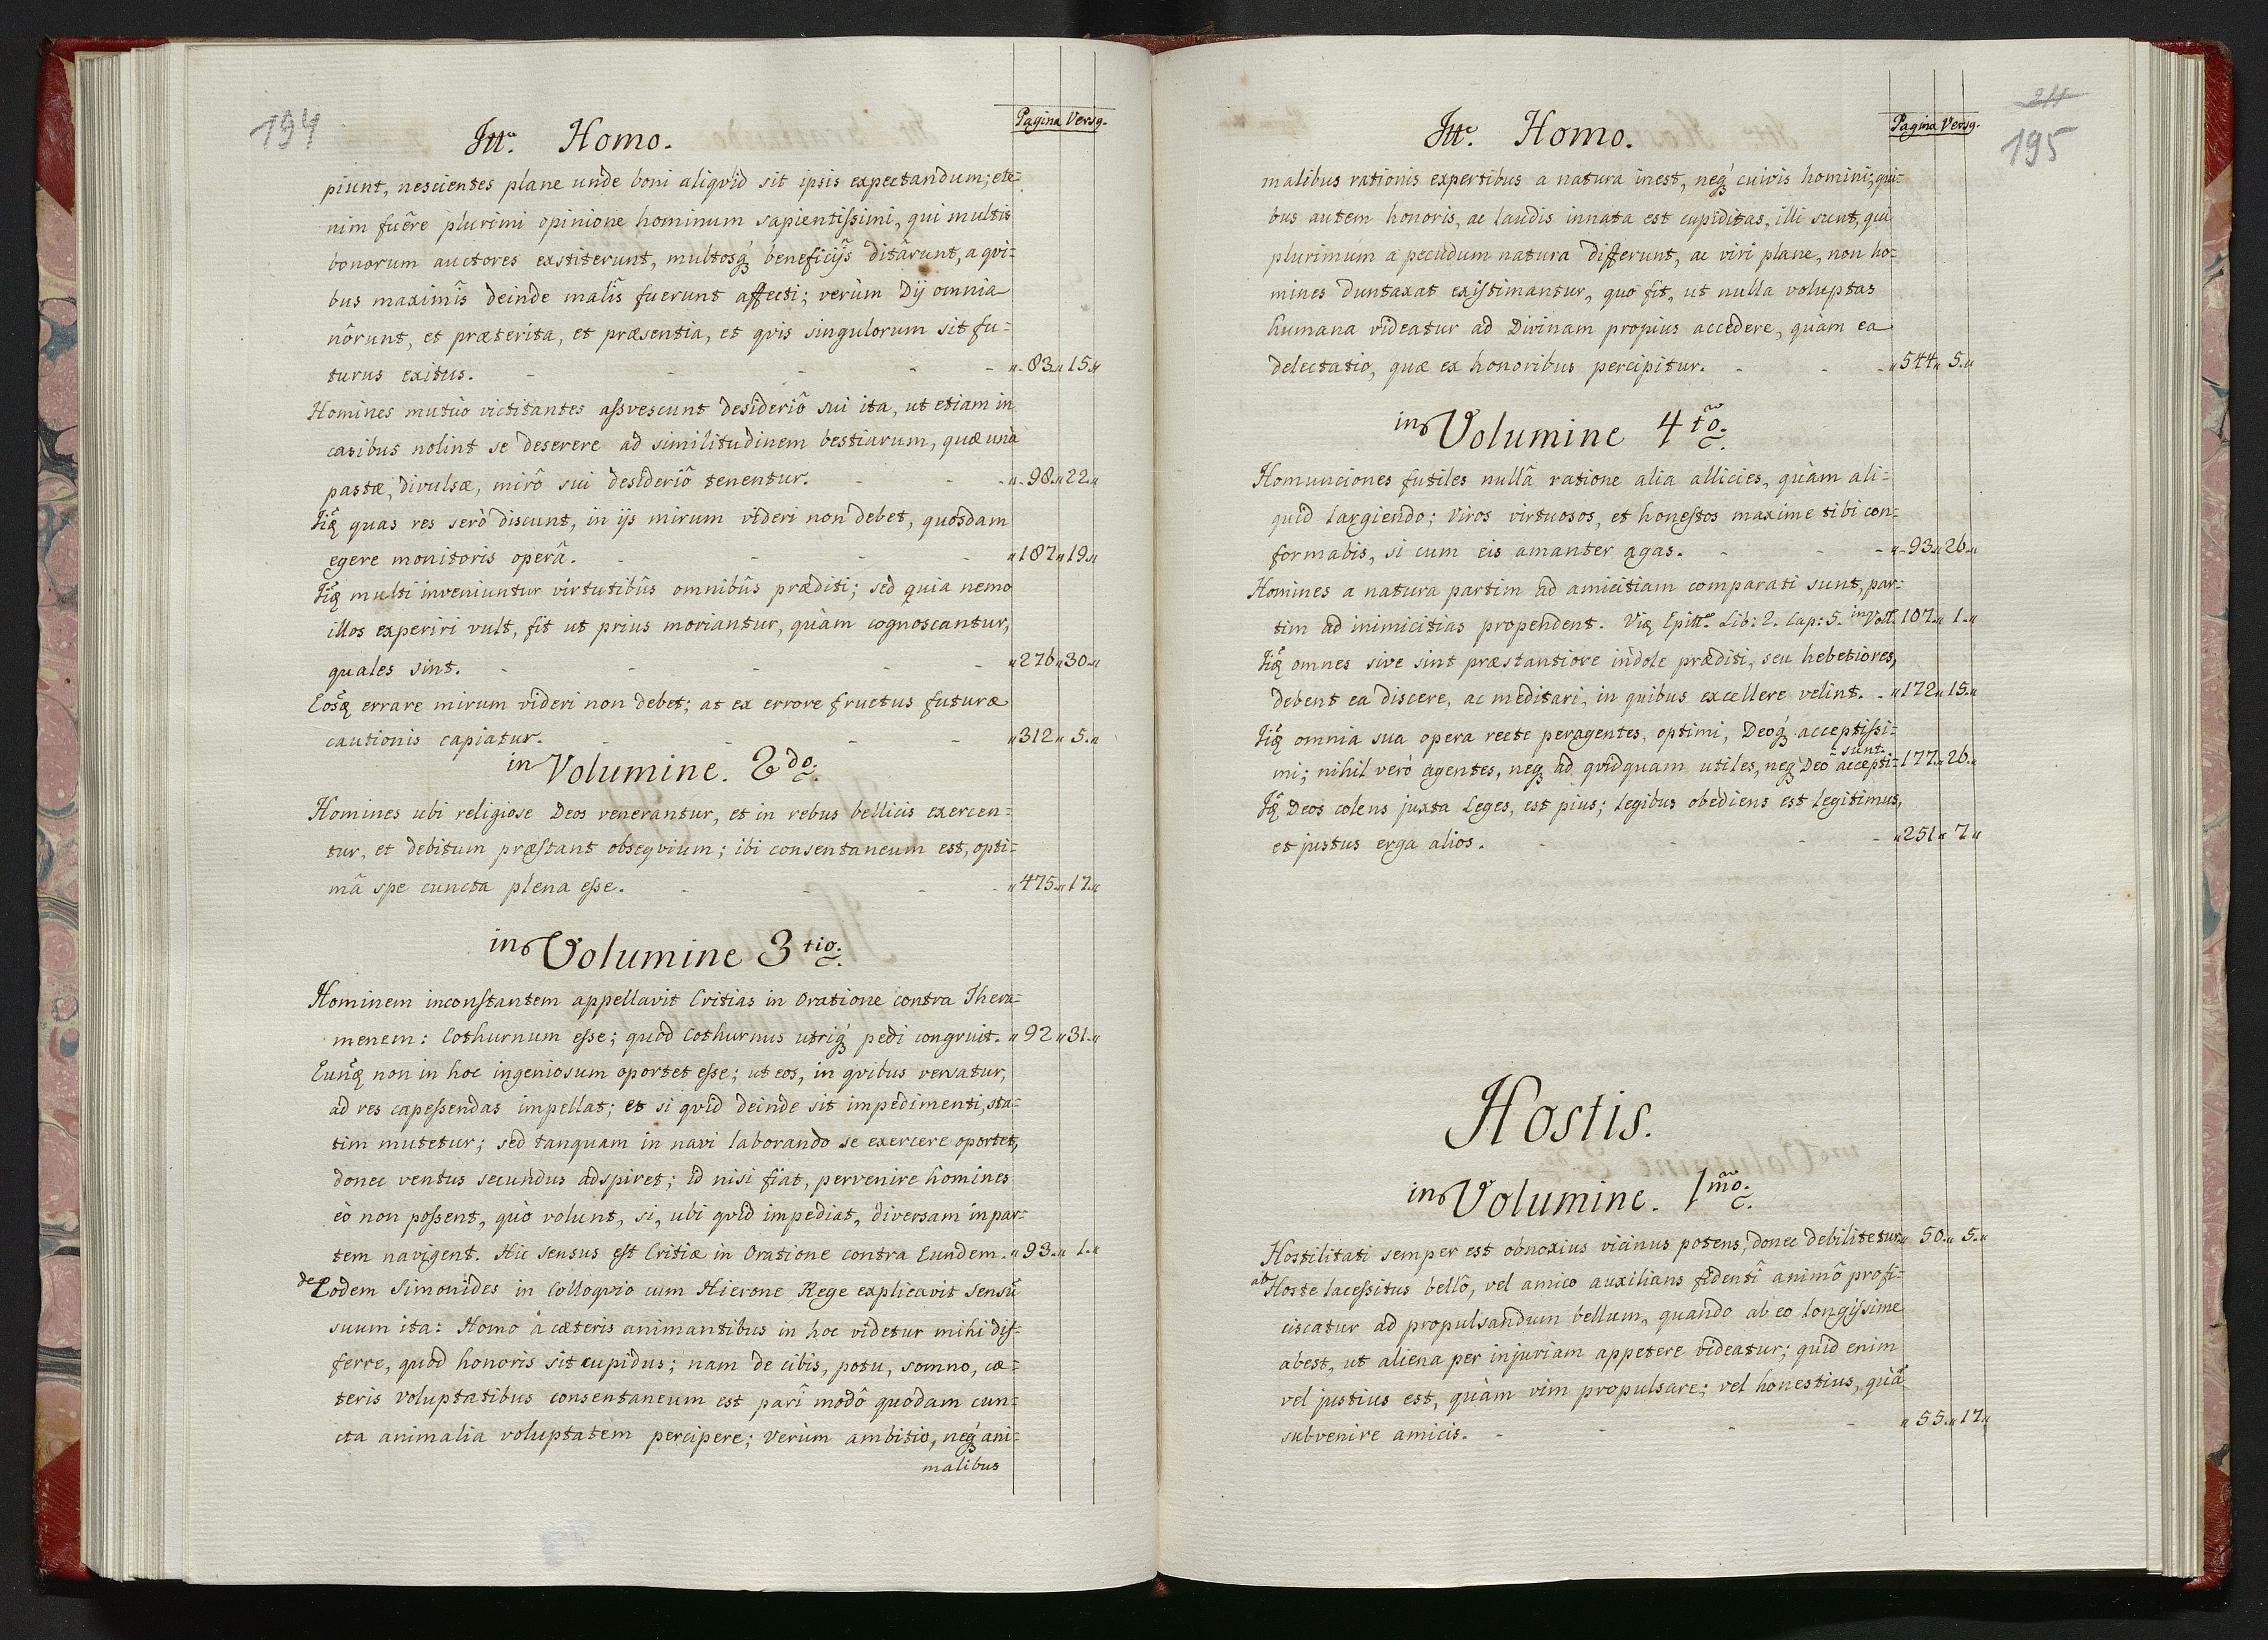 194
Itt. Homo.
Pagina Versq.
piunt, nescientes plane unde boni aliqvid sit ipsis expectandum; ete=
nim fuêre plurimi opinione hominum sapientissimi, qui multis
bonorum auctores exstiterunt, multosq́ beneficijs̃ ditârunt, a qvi=
bus maximis̃ deinde malis̃ fuerunt affecti; verùm Dij omnia
nôrunt, et præterita, et præsentia, et qvis singulorum sit fu=
turus exitus. - - - - - „ 83 „ 15 „
Homines mutùo victitantes assvescunt desideriô sui ita, ut etiam in
casibus nolint se deserere ad similitudinem bestiarum, quæ unà
pastæ, divulsæ, mirô sui desideriô tenentur. - - - „ 98 „ 22 „
quas res serò discunt, in ijs mirum videri non debet, quosdam
egere monitoris operâ. - - - - „ 187 „ 19 „
multi inveniuntur virtutibus̃ omnibus̃ præditi; sed quia nemo
illos experiri vult, fit ut prius moriantur, quàm cognoscantur,
quales sint. - - - - - „ 276 „ 30 „
errare mirum videri non debet; at ex errore fructus futuræ
cautionis capiatur. - - - - „ 312 „ 5 „
in Volumine. 2do.
Homines ubi religiose Deos venerantur, et in rebus bellicis exercen=
tur, et debitum præstant obseqvium; ibi consentaneum est, opti=
mâ spe cuncta plena esse. - - - - „ 475 „ 17 „
in Volumine 3tio.
Hominem inconstantem appellavit Critias in Oratione contra Thera=
menem: Cothurnum esse; quod Cothurnus utriq́ pedi congruit. „ 92 „ 31 „
non in hoc ingeniosum oportet esse; ut eos, in qvibus versatur,
ad res capessendas impellat; et si qvid deinde sit impedimenti, sta=
tim mutetur; sed tanquam in navi laborando se exercere oportet,
donec ventus secundus adspiret; id nisi fiat, pervenire homines
eò non possent, quò volunt, si, ubi qvid impediat, diversam in par=
tem navigent. Hic sensus est Critiæ in Oratione contra Eundem. „ 93 „ 1 „
de Eodem Simonides in Colloqvio cum Hierone Rege explicavit sensũ
suum ita: Homo à cæteris animantibus in hoc videtur mihi dif=
ferre, quod honoris sit cupidus; nam de cibis, potu, somno, cæ=
teris voluptatibus consentaneum est parî modô quodam cun=
cta animalia voluptatem percipere; Verùm ambitio, neq́ ani=
malibus
211
195
Itt. Homo.
Pagina Versq.
malibus rationis expertibus a natura inest, neq́ cuivis homini; qui=
bus autem honoris, ac laudis innata est cupiditas, illi sunt, qui
plurimùm a pecudum natura differunt, ac viri plane, non ho=
mines duntaxat existimantur, quo fit, ut nulla voluptas
humana videatur ad Divinam propius accedere, quàm ea
delectatio, quæ ex honoribus percipitur. - - - „ 544 „ 5 „
in Volumine 4to.
Homunciones futiles nullâ ratione alia allicies, quàm ali=
quid largiendo; Viros virtuosos, et honestos maxime tibi con=
formabis, si cum eis amanter agas. - - - „ 93 „ 26 „
Homines a natura partim ad amicitiam comparati sunt, par=
tim ad inimicitias propendent. Lib: 2. Cap: 5. 107 „ 1 „
omnes sive sint præstantiore indole præditi, seu hebetiores,
debent ea discere, ac meditari, in quibus excellere velint. - „ 172 „ 15 „
omnia sua opera recte peragentes, optimi, Deoq́ acceptissi=
- sunt.
mi; nihil verò agentes, neq́ ad qvidquam utiles, neq́ Deo accepti= 177 „ 26 „
Deos colens juxta Leges, est pius; legibus obediens est Legitimus,
et justus erga alios. - - - - „ 251 „ 7 „
Hostis.
in Volumine. 1mo.
Hostilitati semper est obnoxius vicinus potens, donec debilitetur „ 50 „ 5 „
ab Hoste lacessitus bellô, vel amico auxilians fidentî animô profi=
ciscatur ad propulsandum bellum, quando ab eo longissime
abest, ut aliena per injuriam appetere videatur; quid enim
vel justius est, quàm vim propulsare; vel honestius, quã
subvenire amicis. - - - - „ 55 „ 17 „